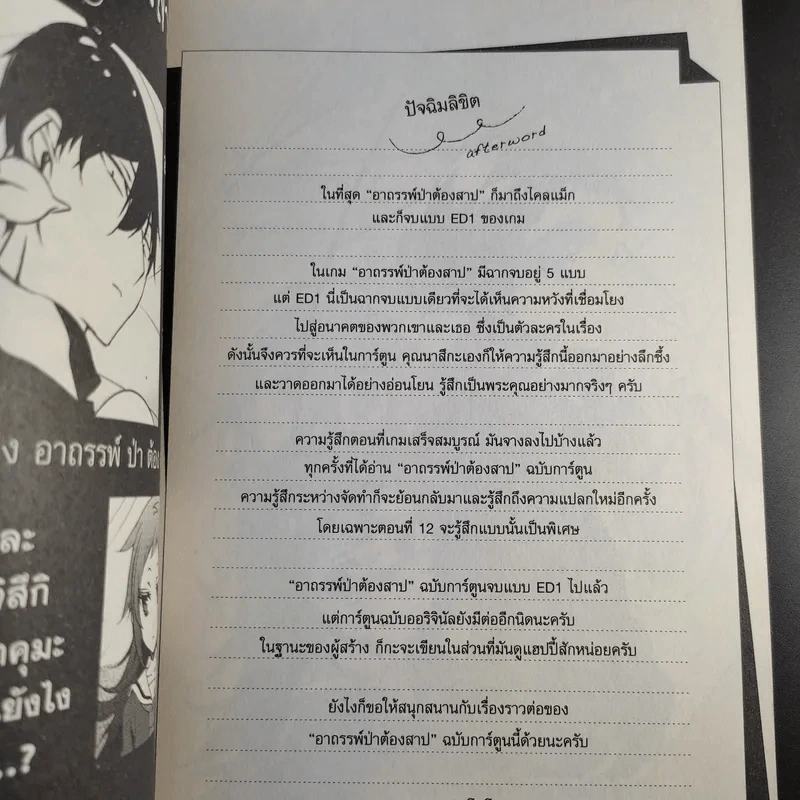 อาถรรพ์ ป่า ต้อง
ละ
คุมะ
ยังไง
...?
ปัจฉิมลิขิต
afterword
ในที่สุด “อาถรรพ์ป่าต้องสาป” ก็มาถึงไคลแม็ก
และก็จบแบบ ED1 ของเกม
ในเกม “อาถรรพ์ป่าต้องสาป” มีฉากจบอยู่ 5 แบบ
แต่ ED1 นี่เป็นฉากจบแบบเดียวที่จะได้เห็นความหวังที่เชื่อมโยง
ไปสู่อนาคตของพวกเขาและเธอ ซึ่งเป็นตัวละครในเรื่อง
ดังนั้นจึงควรที่จะเห็นในการ์ตูน คุณนาสึกะเองก็ให้ความรู้สึกนี้ออกมาอย่างลึกซึ้ง
และวาดออกมาได้อย่างอ่อนโยน รู้สึกเป็นพระคุณอย่างมากจริงๆ ครับ
ความรู้สึกตอนที่เกมเสร็จสมบูรณ์ มันจางลงไปบ้างแล้ว
ทุกครั้งที่ได้อ่าน “อาถรรพ์ป่าต้องสาป” ฉบับการ์ตูน
ความรู้สึกระหว่างจัดทำก็จะย้อนกลับมาและรู้สึกถึงความแปลกใหม่อีกครั้ง
โดยเฉพาะตอนที่ 12 จะรู้สึกแบบนั้นเป็นพิเศษ
“อาถรรพ์ป่าต้องสาป” ฉบับการ์ตูนจบแบบ ED1 ไปแล้ว
แต่การ์ตูนฉบับออริจินัลยังมีต่ออีกนิดนะครับ
ในฐานะของผู้สร้าง ก็กะจะเขียนในส่วนที่มันดูแฮปปี้สักหน่อยครับ
ยังไงก็ขอให้สนุกสนานกับเรื่องราวต่อของ
“อาถรรพ์ป่าต้องสาป” ฉบับการ์ตูนนี้ด้วยนะครับ